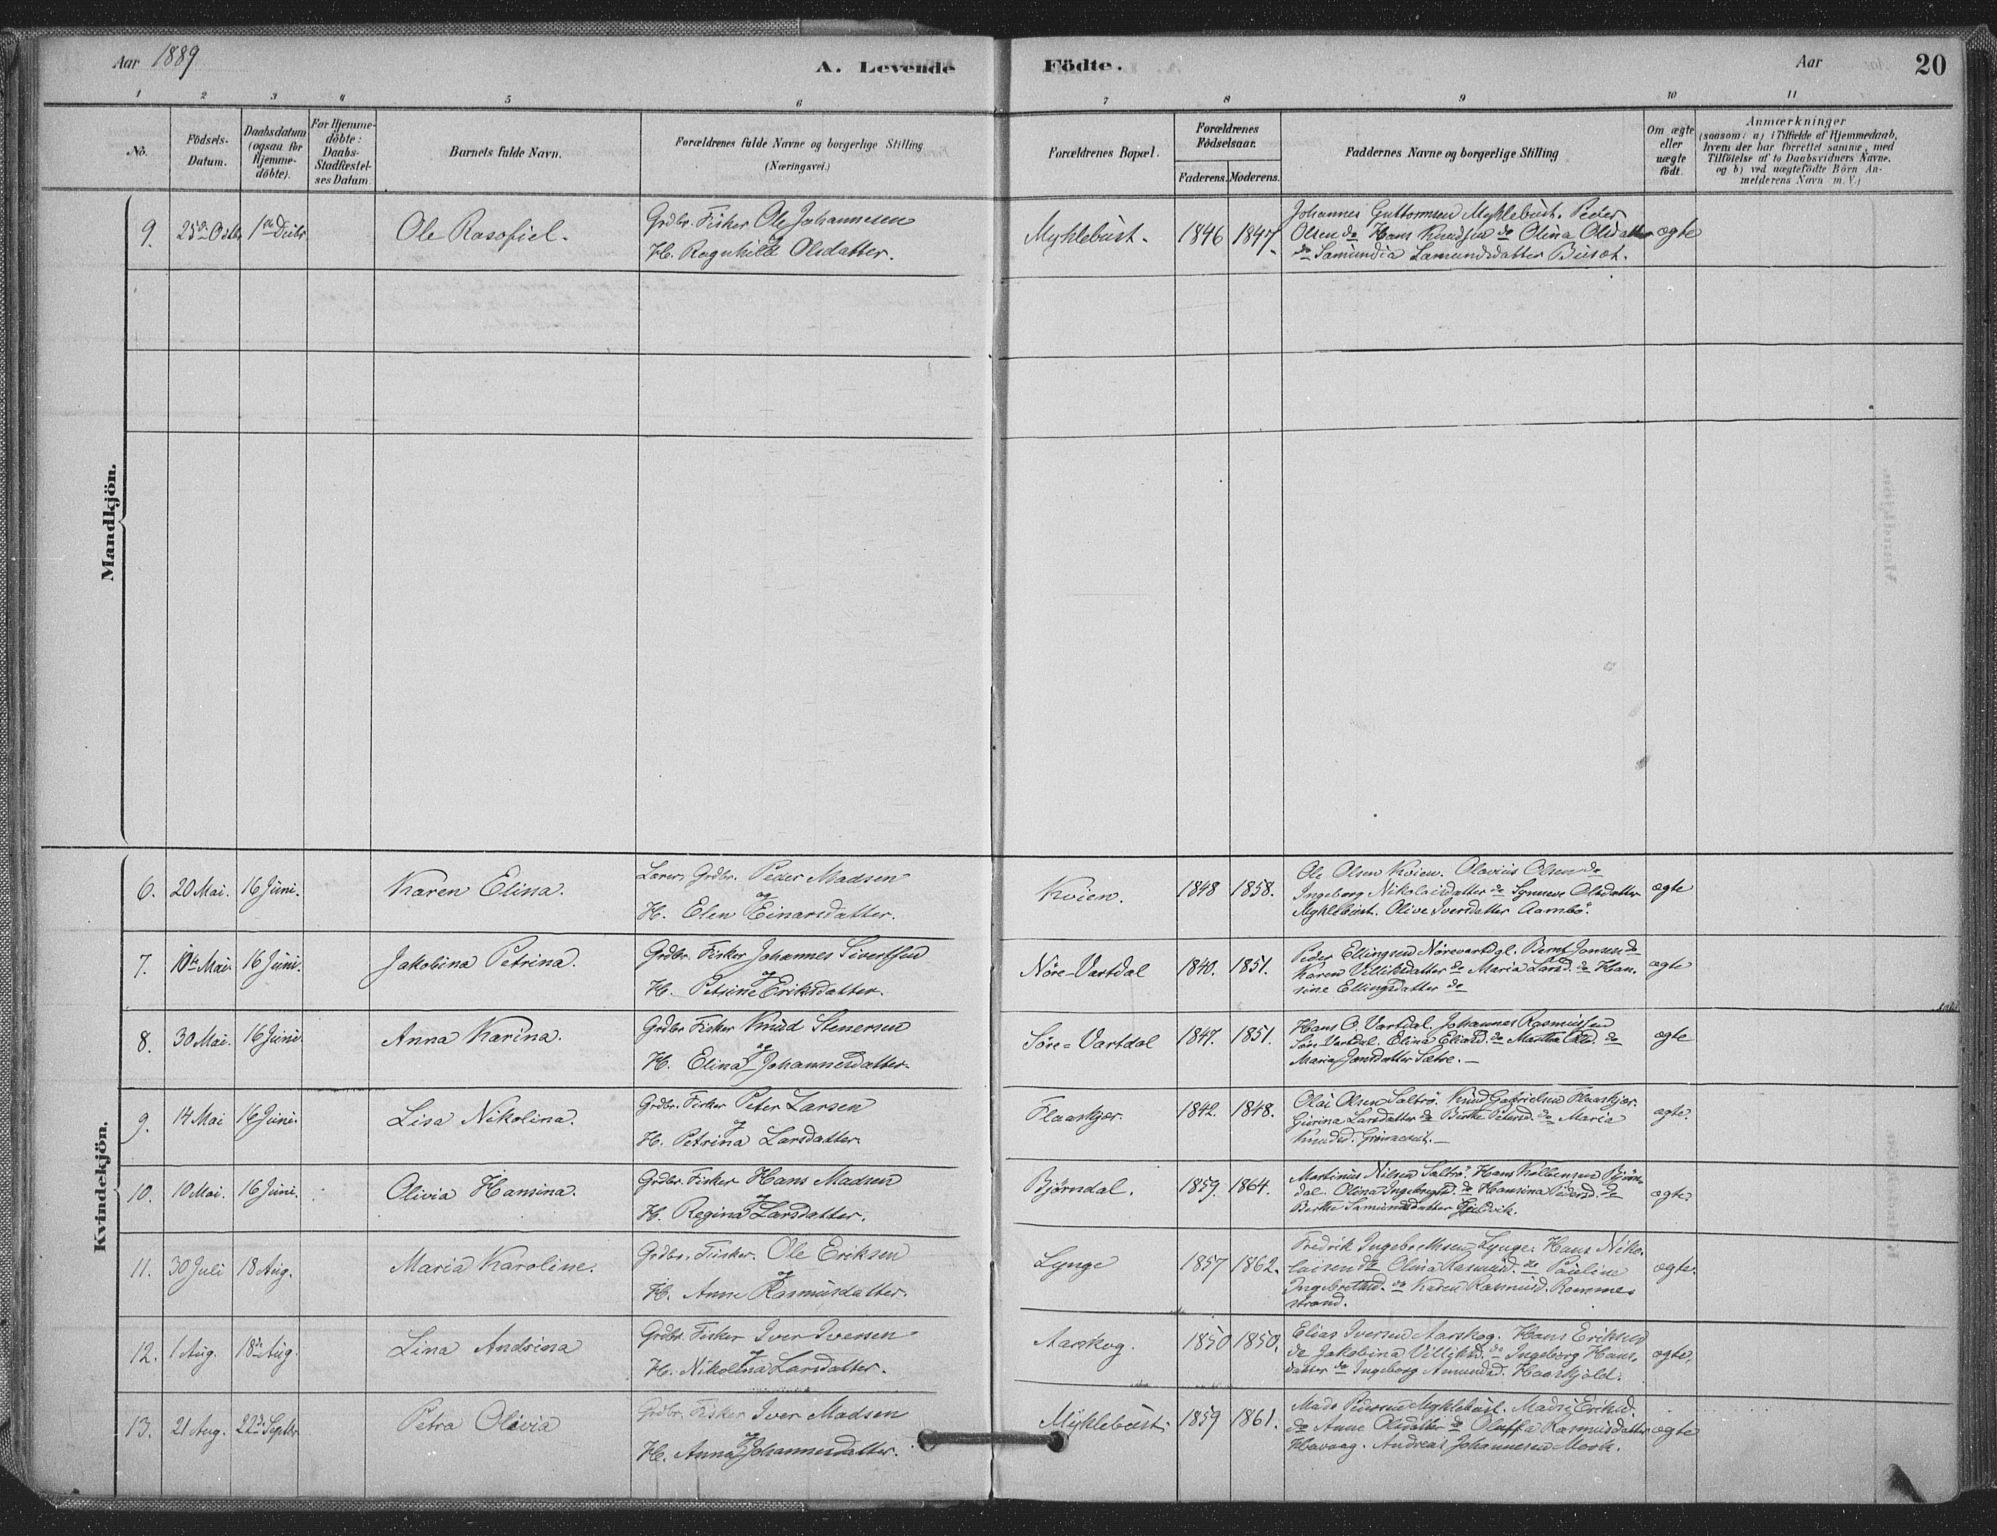 Aar 1889
A. Levende Födte.
Aar
20
1 2 3 4 5 6 7 8 9 10 11
No.
Födsels-Datum.
Daabsdatum (ogsaa for Hjemme-döbte).
For Hjemme-döbte: Daabs-Stadfæstel-ses Datum
Barnets fulde Navn.
Forældrenes fulde Navne og borgerlige Stilling
(Næringsvei.)
Forældrenes Bopæl.
Forældrenes Födselsaar.
Faderens. Moderens.
Faddernes Navne og borgerlige Stilling
Om ægte eller uægte födt.
Anmærkninger
(saasom: a) i Tilfælde af Hjemmedaab,
hvem der har forrettet samme, med
Tilföielse af to Daabsvidners Navne,
og b) ved uægtefödte Börn An-
melderens Navn m. V.)
Mandkjön.
9. 25de Octbr 1ste Decbr Ole Rasofiel. Grdbr. Fisker Ole Johannesen
og
H. Ragnhild Olsdatter.
Myklebust. 1846 1847.
Johannes Guttormsen Myklebust. Peder
Olsen do Hans Knudsen do Olina Olsdatter
do Samundia Samundsdatter
ægte
Kvindekjön.
6. 20 Mai. 16 Juni. Karen Elina. Lærer, Grdbr. Peder Madsen
og
H. Elen Einarsdatter.
Kvien. 1848 1858.
Ole Olsen Kvien. Olavius Olsen do
Ingeborg Nikolaisdatter do Synneve Olsdatter
Myklebust. Olive Iversdatter Aambö.
ægte
7. 10de Mai. 16 Juni. Jakobina Petrina. Grdbr. Fisker Johannes Sivertsen
og
H. Petrine Eriksdatter.
Nöre-Vartdal 1840. 1851.
Peder Ellingsen Nörevartdal. Bernt Jonsen do
Karen Villiksdatter do Maria Larsd. do Han-
sine Ellingsdatter do
ægte
8. 30 Mai. 16 Juni. Anna Karina. Grdbr. Fisker Knud Stenersen
og
H. Elina Johannesdatter.
Söre=Vartdal 1847. 1851.
Hans O. Vartdal. Johannes Rasmussen
Sör Vartdal. Elina Eliasd. do Martha Olsd. do
Maria Jonsdatter Sætre.
ægte
9. 14 Mai 16 Juni. Lisa Nikolina. Grdbr. Fisker Peter Larsen
og
H. Petrina Larsdatter.
Flaaskjer. 1842. 1848.
Olai Olsen Saltrö. Knud Gabrielsen Flaaskjer.
Gurina Larsdatter do Berthe Petersd. do Maria
Knudsd.
ægte.
10. 10 Mai. 16 Juni. Olivia Hansina. Grdbr. Fisker Hans Madsen
og
H. Regina Larsdatter.
Björndal. 1859. 1864.
Martinus Nilsen Saltrö. Hans Kolbensen Björn-
dal. Olina Ingebrigtsd. do Hansina Pedersd. do
Berthe Samundsdatter
ægte.
11. 30 Juli 18 Aug. Maria Karoline. Grdbr. Fisker. Ole Eriksen
og
H. Anne Rasmusdatter.
Lynge 1857 1862.
Fredrik Ingebrethsen Lynge. Hans Niko-
laisen do Olina Rasmusd. do Pauline
Ingebrethsd. do Karen Rasmusd. Rommes
strand.
ægte.
12. 1 Aug. 18de Aug. Lina Andrina Grdbr. Fisker Iver Iversen
og
H. Nikolina Larsdatter.
Aarskog. 1850 1850.
Elias Iversen Aarskog. Hans Eriksen
do Jakobina Villiksd. do Ingeborg Hans-
datter do Ingeborg Amundsd. Haaskjold.
ægte.
13. 21 Aug. 22de Septbr. Petra Olivia Grdbr. Fisker Iver Madsen
og
H. Anna Johannesdatter.
Myklebust. 1859 1861.
Mads Pedersen Myklebust. Mads Eriksd.
do Anne Olsdatter do Oluffa Rasmusdatter
Havaag. Andreas Johannesen Mork.
ægte